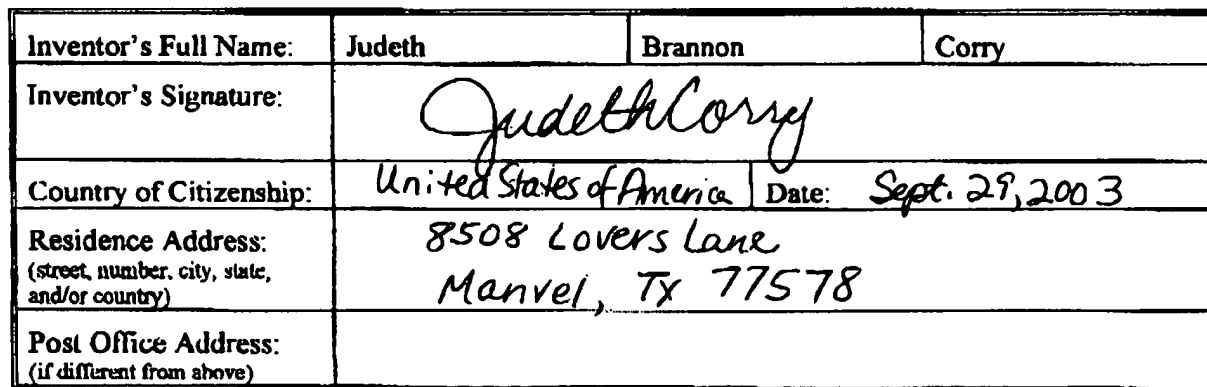 Inventor's Full Name: Judeth Brannon Corry
Inventor's Signature: Judeth Corry
Country of Citizenship: United States of America Date: Sept. 29, 2003
Residence Address: 8508 Lovers Lane
(street, number, city, state, Manvel, Tx 77578
and/or country)
Post Office Address:
(if different from above)